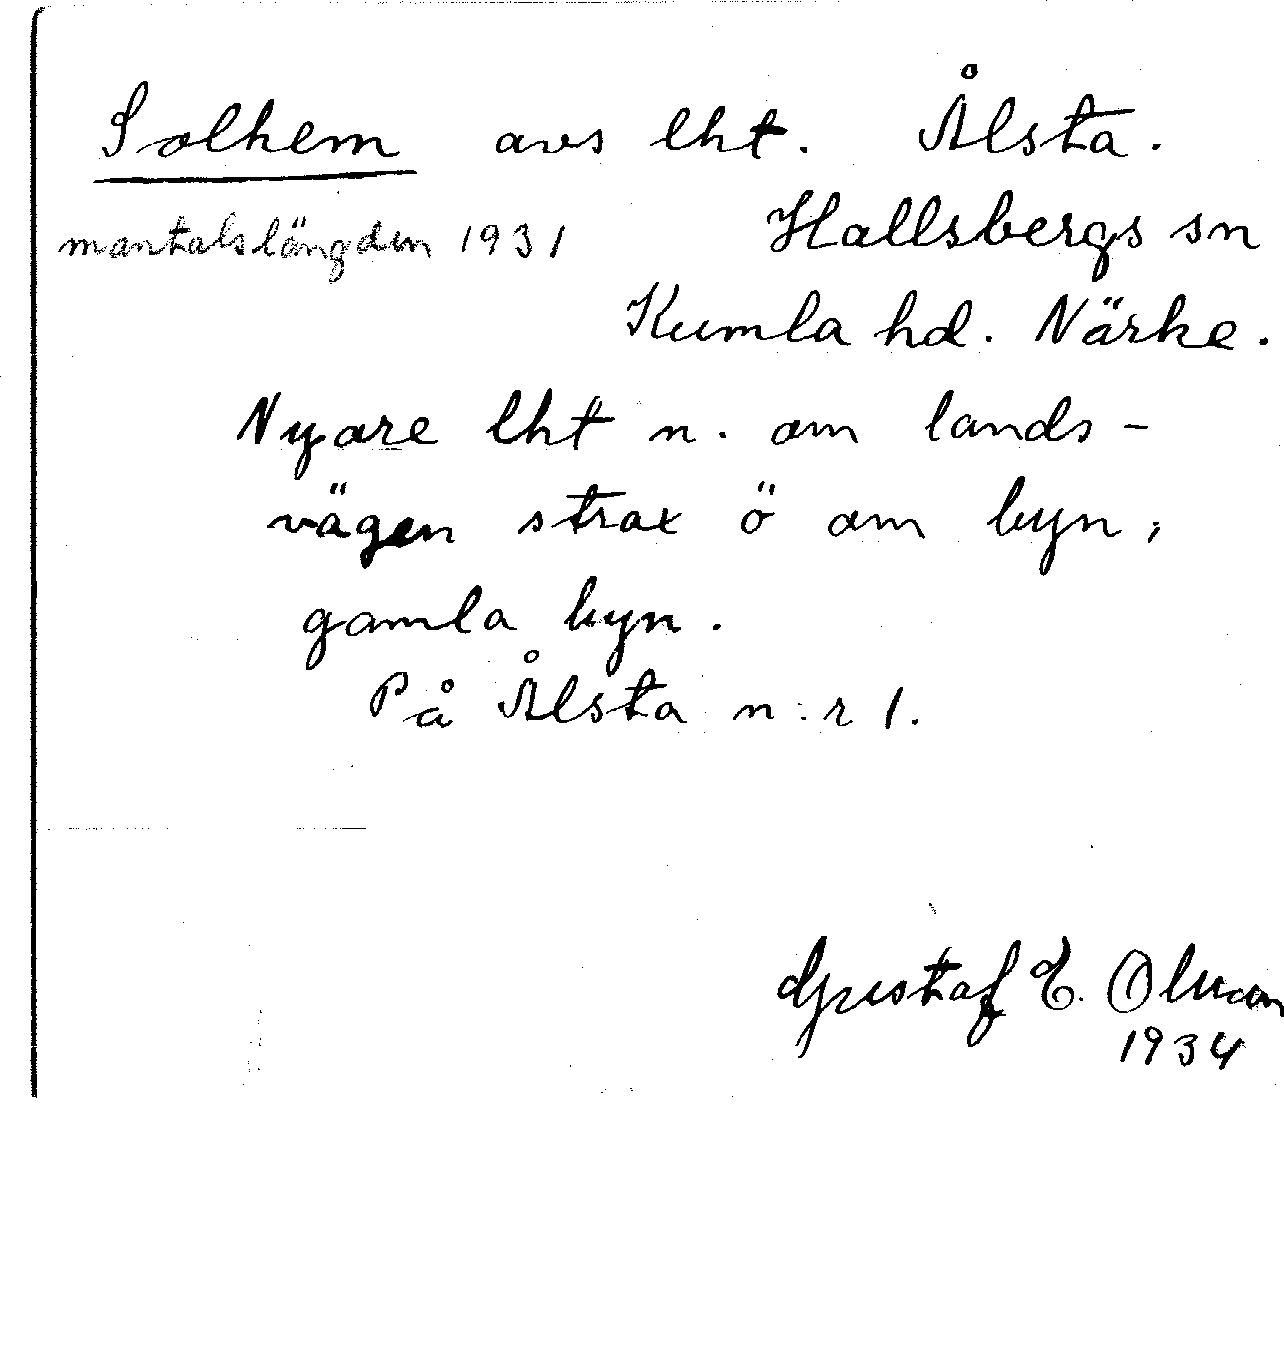 Solhem avs lht. Ålsta.
mantalslängden 1931 Hallsbergs sn
Kumla hd. Närke.
Nyare lht n. om lands-
vägen strax ö om byn,
gamla byn.
På Ålsta n:r 1.
Gustaf E. Olman
1934